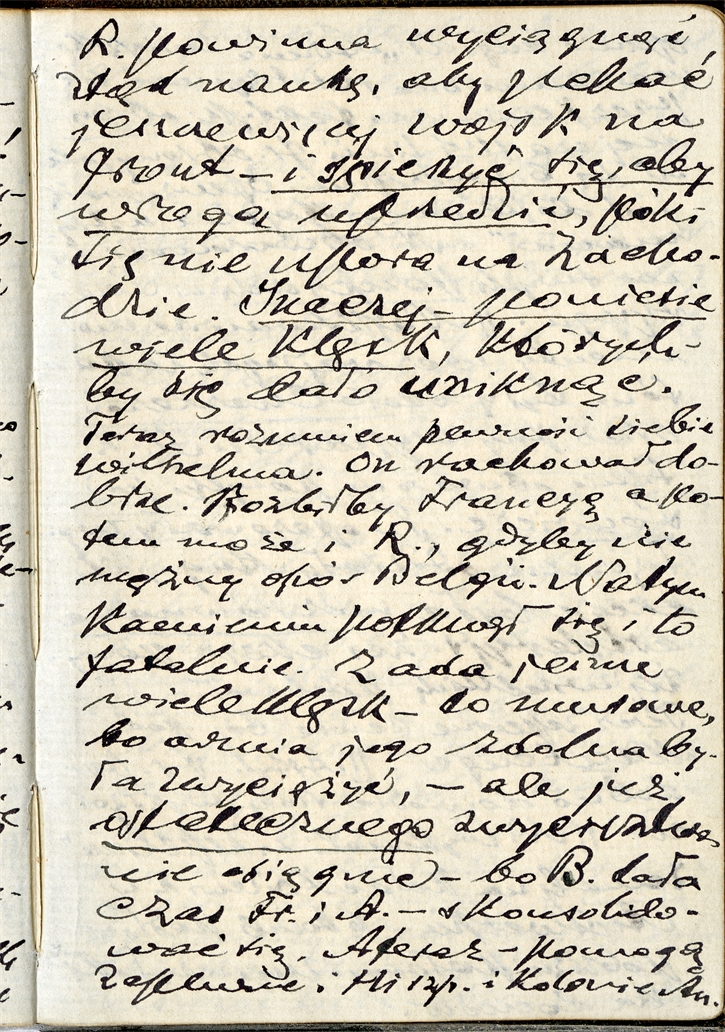 R. powinna wyciągnąć
stąd naukę, aby pchać
jeszcze więcej wojsk na
front – i śpieszyć się, aby
wroga uprzedzić, póki
się nie upora na Zacho-
dzie. Inaczej – poniesie
wiele klęsk, których-
by się dało uniknąć.
Teraz rozumiem pewność siebie
Wilhelma. On rachował do-
brze. Rozbiłby Francyą a po-
tem może i R., gdyby nie
mężny opór Belgii. Na tym
kamieniu potknął się i to
fatalnie. Zada jeszcze
wiele klęsk – to
bo armia jego zdolna by-
ła zwyciężyć, – ale już
ostatecznego zwycięstwa
nie osiągnie – bo B. dała
czas Fr. i A. – skonsolido-
wać się. A teraz – pomogą
zapewne i Hiszp. i Kolonie An.